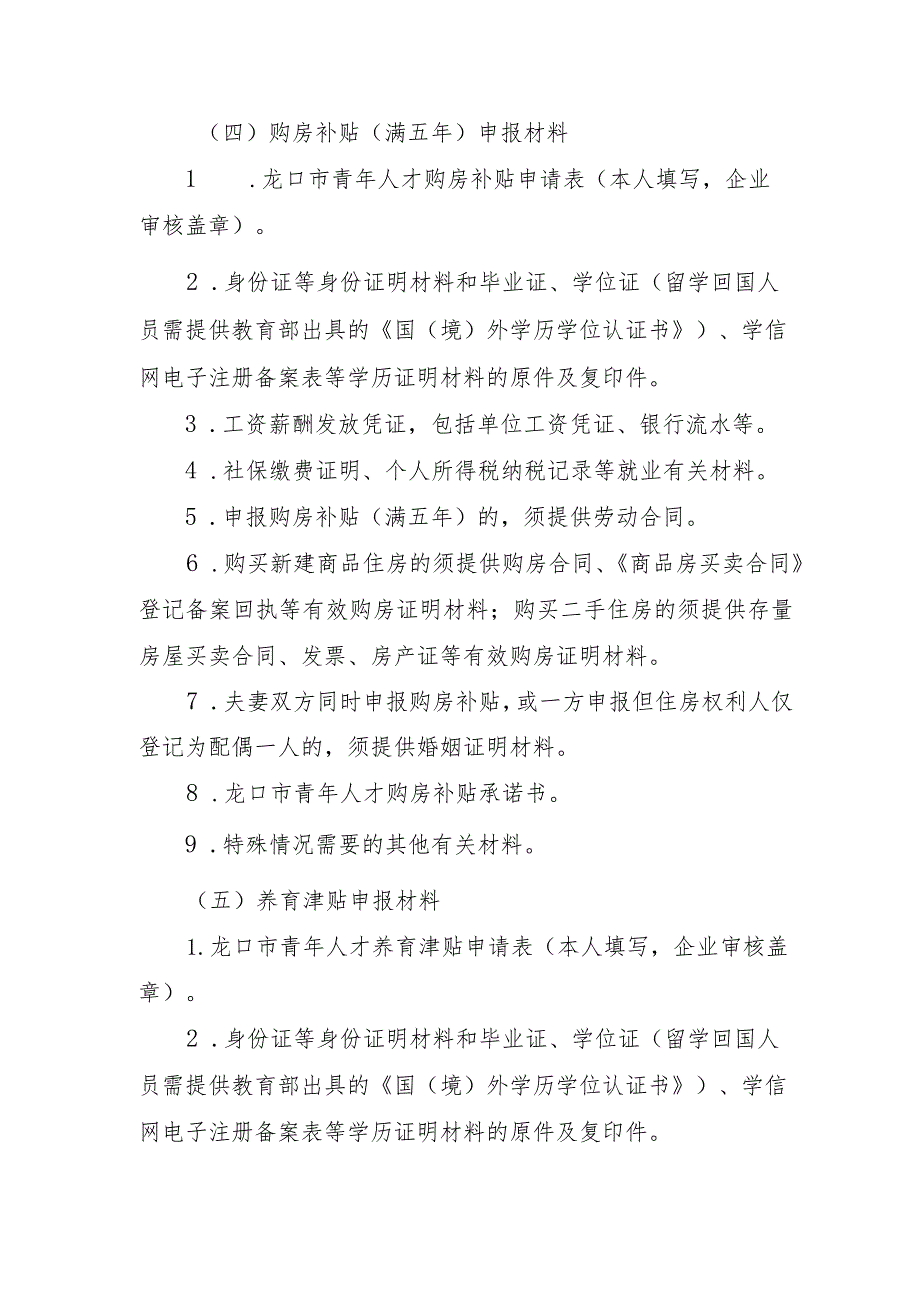 （四）购房补贴（满五年）申报材料
1 .龙口市青年人才购房补贴申请表（本人填写，企业
审核盖章）。
2 .身份证等身份证明材料和毕业证、学位证（留学回国人
员需提供教育部出具的《国（境）外学历学位认证书》）、学信
网电子注册备案表等学历证明材料的原件及复印件。
3 .工资薪酬发放凭证，包括单位工资凭证、银行流水等。
4 .社保缴费证明、个人所得税纳税记录等就业有关材料。
5 .申报购房补贴（满五年）的，须提供劳动合同。
6 .购买新建商品住房的须提供购房合同、《商品房买卖合同》
登记备案回执等有效购房证明材料；购买二手住房的须提供存量
房屋买卖合同、发票、房产证等有效购房证明材料。
7 .夫妻双方同时申报购房补贴，或一方申报但住房权利人仅
登记为配偶一人的，须提供婚姻证明材料。
8 .龙口市青年人才购房补贴承诺书。
9 .特殊情况需要的其他有关材料。
（五）养育津贴申报材料
1.龙口市青年人才养育津贴申请表（本人填写，企业审核盖
章）。
2 .身份证等身份证明材料和毕业证、学位证（留学回国人
员需提供教育部出具的《国（境）外学历学位认证书》）、学信
网电子注册备案表等学历证明材料的原件及复印件。